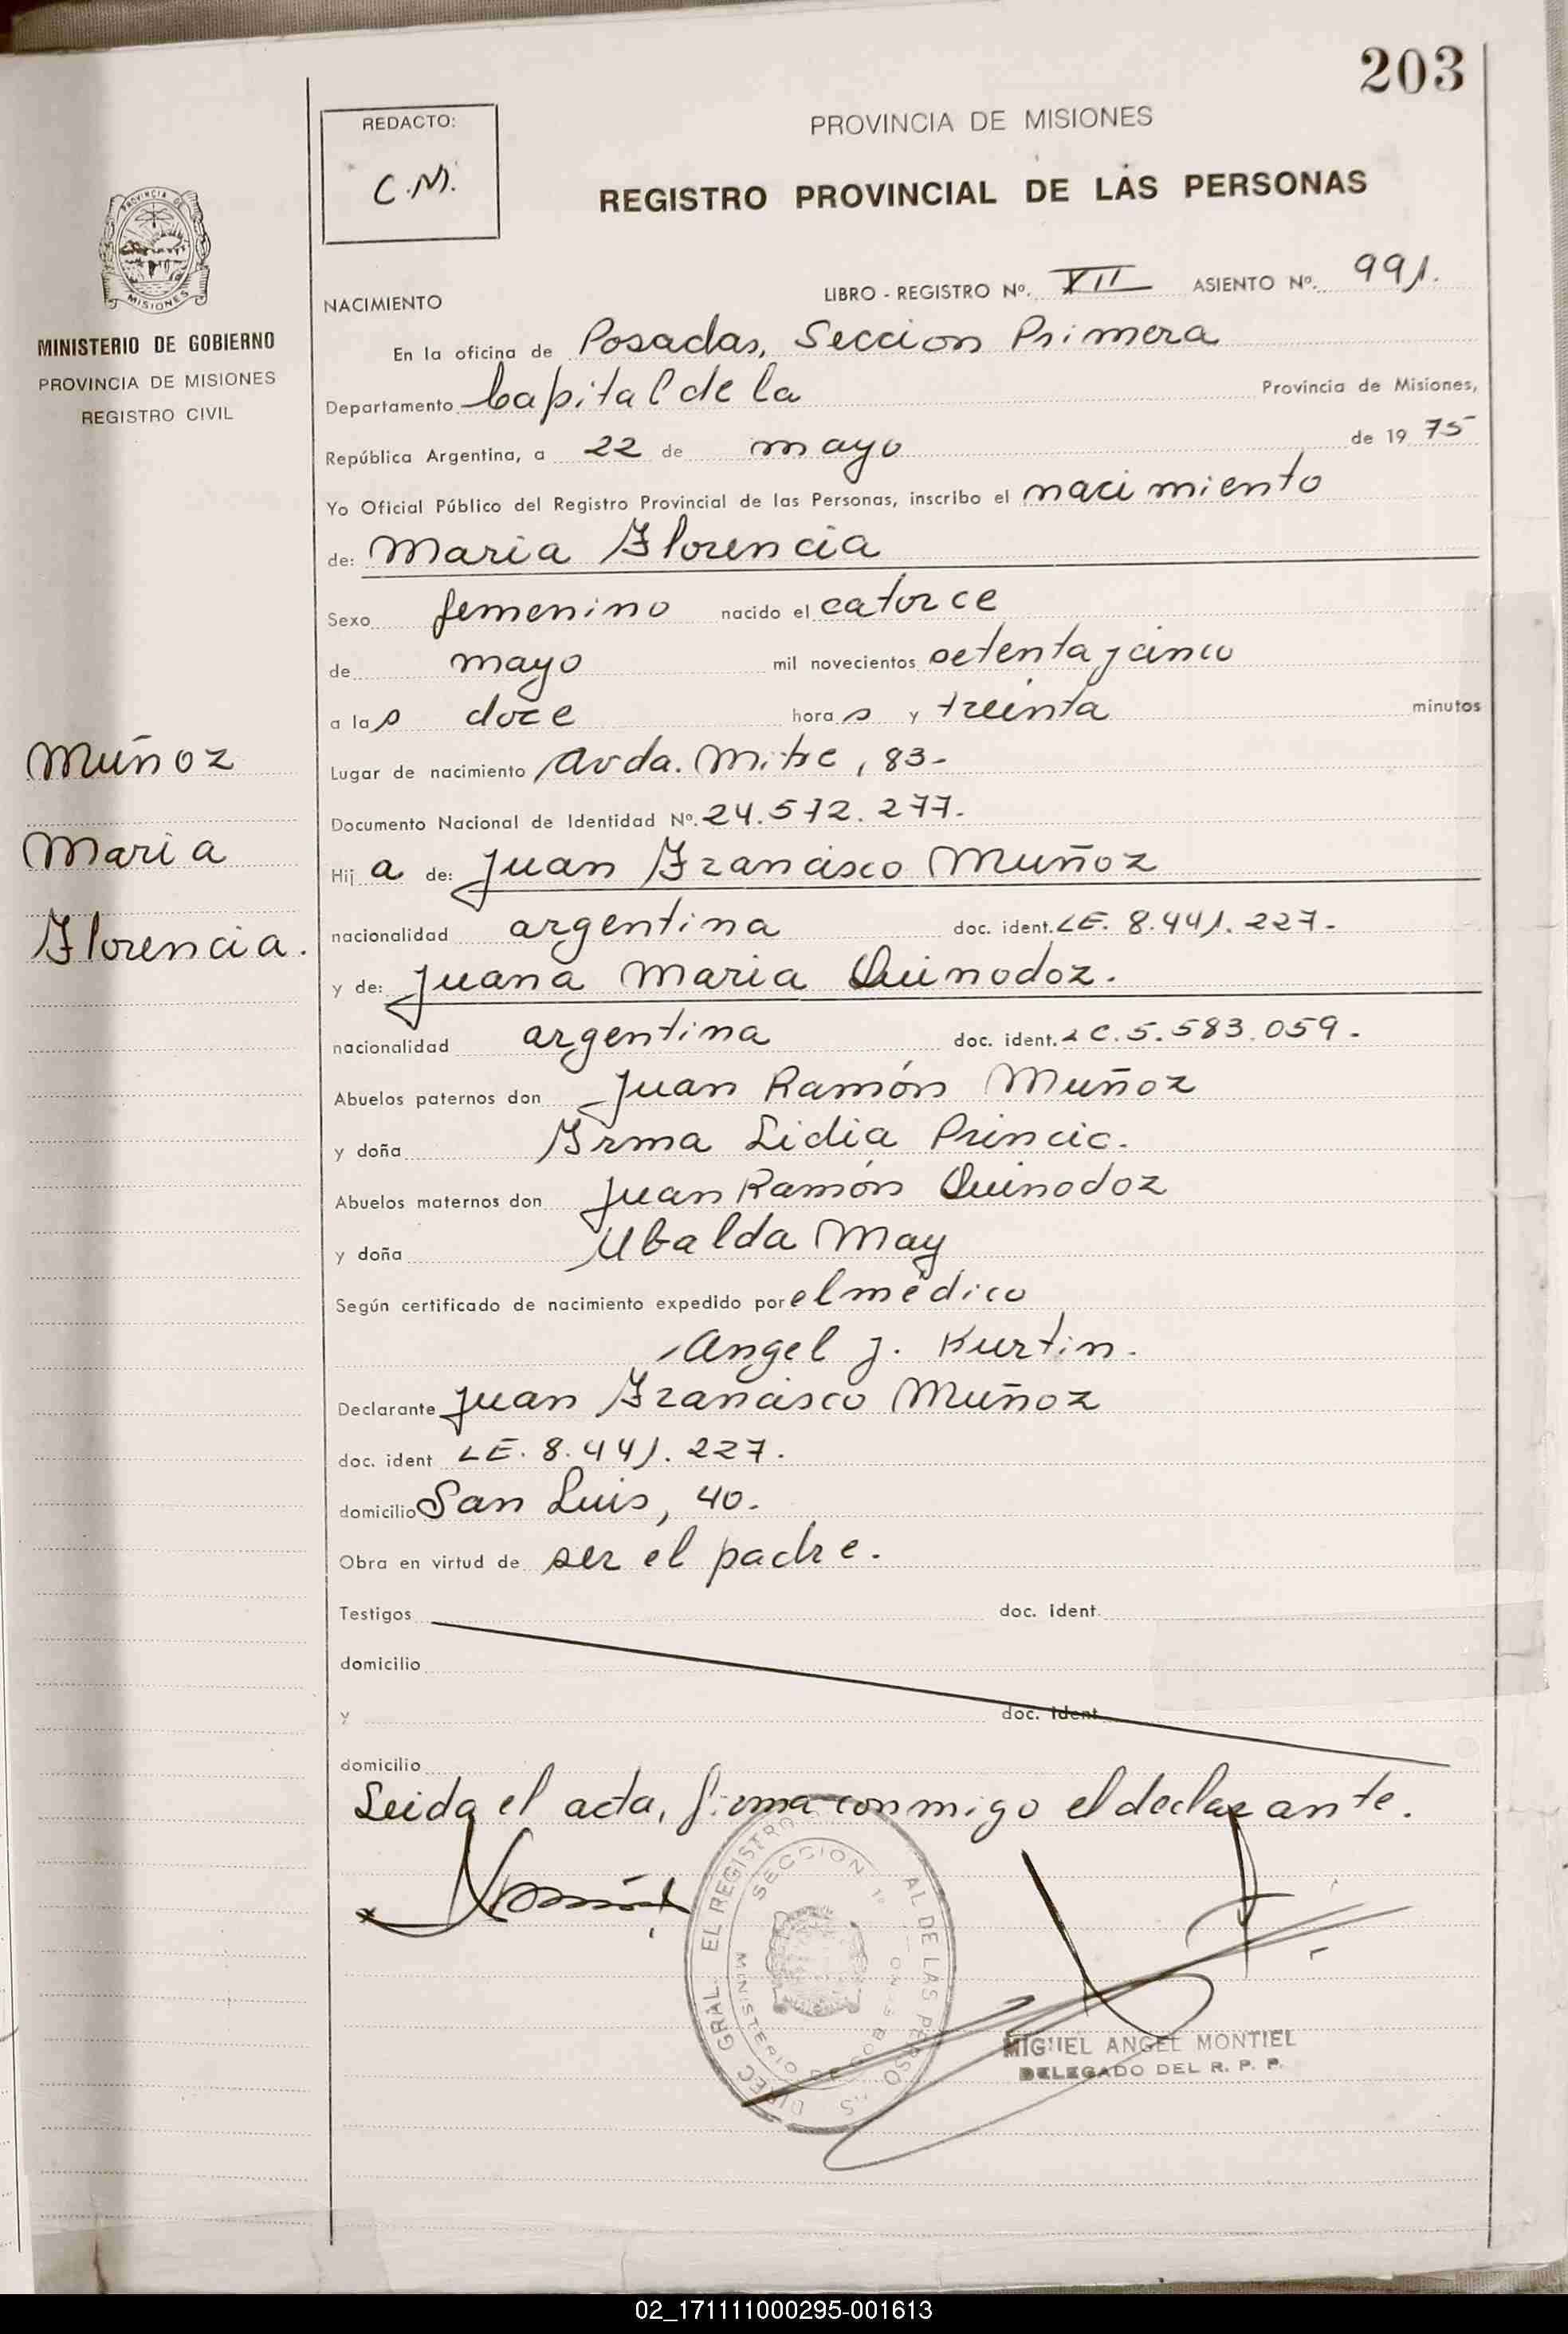 203
REDACTO:
C.M.
PROVINCIA DE MISIONES
REGISTRO PROVINCIAL DE LAS PERSONAS
PROVINCIA DE
MISIONES
MINISTERIO DE GOBIERNO
PROVINCIA DE MISIONES
REGISTRO CIVIL
Muñoz
Maria
Florencia.
NACIMIENTO
LIBRO - REGISTRO Nº. VII ASIENTO Nº. 991.
En la oficina de Posadas, Seccion Primera
Departamento Capital de la Provincia de Misiones,
República Argentina, a 22 de mayo de 19 75
Yo Oficial Público del Registro Provincial de las Personas, inscribo el nacimiento
de: Maria Florencia
Sexo femenino nacido el catorce
de mayo mil novecientos setenta y cinco
a las doce horas y treinta minutos
Lugar de nacimiento Avda. Mitre, 83-
Documento Nacional de Identidad Nº. 24.572.277.
Hija de: Juan Francisco Muñoz
nacionalidad argentina doc. ident. LE. 8.441.227.-
y de: Juana Maria Quinodoz.
nacionalidad argentina doc. ident. LC. 5.583.059.-
Abuelos paternos don Juan Ramón Muñoz
y doña Irma Lidia Princic.
Abuelos maternos don Juan Ramón Quinodoz
y doña Ubalda May
Según certificado de nacimiento expedido por el médico
Angel J. Kurtin.
Declarante Juan Francisco Muñoz
doc. ident LE. 8.441.227.
domicilio San Luis, 40.
Obra en virtud de ser el padre.
Testigos doc. ident.
domicilio
y doc. ident.
domicilio
Leida el acta, firma conmigo el declarante.
DIREC GRAL. EL REGISTRO AL DE LAS PERSO AS
SECCION 1º
MINISTERIO DE GOB
MIGUEL ANGEL MONTIEL
DELEGADO DEL R. P. P.
02_171111000295-001613